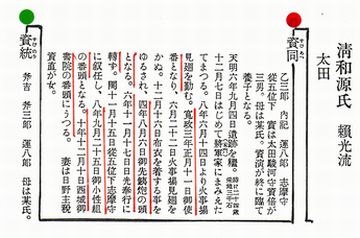 清和源氏 頼光流
太田
資同
乙三郎 内記 運八郎 志摩守
從五位下 實は太田駿河守資倍が
三男。母は某氏。資演が終に臨て
養子となる。
天明六年九月四日遺跡を繼。時に二十四歳
十二月七日はじめて將軍家にまみえた
てまつる。八年六月十四日より火事場
見廻を勤む。寛政三年正月十一日御使
番となり、六月二十二日火事場見廻を
かぬ。十二月十六日布衣を着する事を
ゆるされ、四年八月六日御先鐵炮の頭
となる。六年十一月十七日先奉行に
轉す。閏十一月十五日從五位下志摩守
に叙任し、八年九月二十五日御小性組
の番頭となる。十年十二月十日西城御
書院の番頭にうつる。妻は日野主税
資直が女。
資統
斧吉 斧三郎 運八郎 母は某氏。